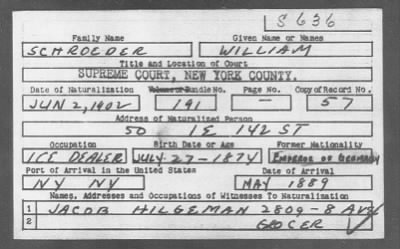 S 636
Family Name Given Name or Names
SCHROEDER WILLIAM
Title and Location of Court
SUPREME COURT, NEW YORK COUNTY.
Date of Naturalization Volume or Bundle No. Page No. Copy of Record No.
JUN 2, 1902 191 — 57
Address of Naturalized Person
50 1E 142 ST
Occupation Birth Date or Age Former Nationality
ICE DEALER JULY-27-1874 EMPEROR OF GERMANY
Port of Arrival in the United States Date of Arrival
NY NY MAY 1889
Names, Addresses and Occupations of Witnesses To Naturalization
1 JACOB HILGEMAN 2809-8 AVE
2 GROCER